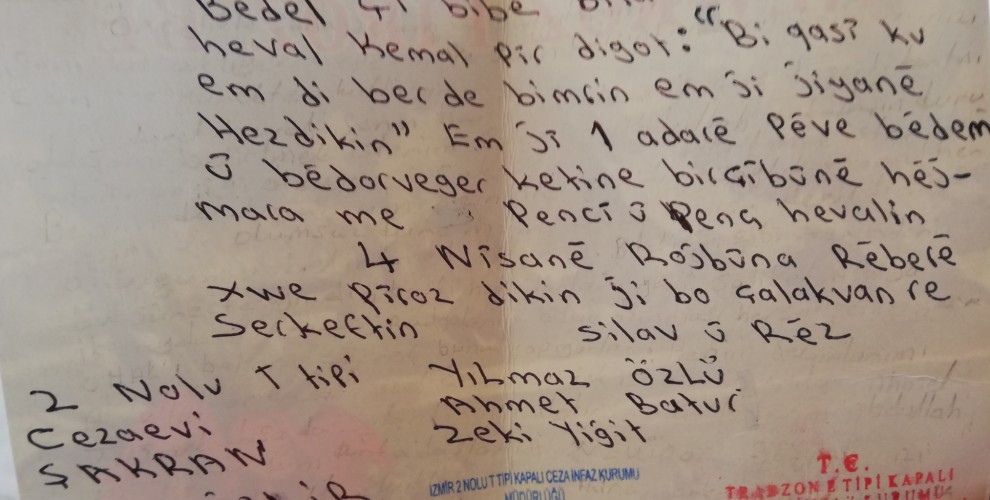 Bedel çi bibe
heval Kemal Pir digot: "Bi qasî ku
em di ber de bimrin em ji jiyanê
Hezdikin" Em jî 1 adarê Pêve bêdem
û bêdorveger ketine birçîbûnê hêj-
mara me Pencî û Penç hevalin
4 Nîsanê Rojbûna Rêberê
xwe Pîroz dikin ji bo çalakvan re
Serkeftin silav û Rêz
2 Nolu T tipi Yılmaz ÖZLÜ
Cezaevi Ahmet Batur
ŞAKRAN Zeki Yiğit
İZMİR 2 NOLU T TİPİ KAPALI CEZA İNFAZ KURUMU
MÜDÜRLÜĞÜ
T.C.
TRABZON E TİPİ KAPALI